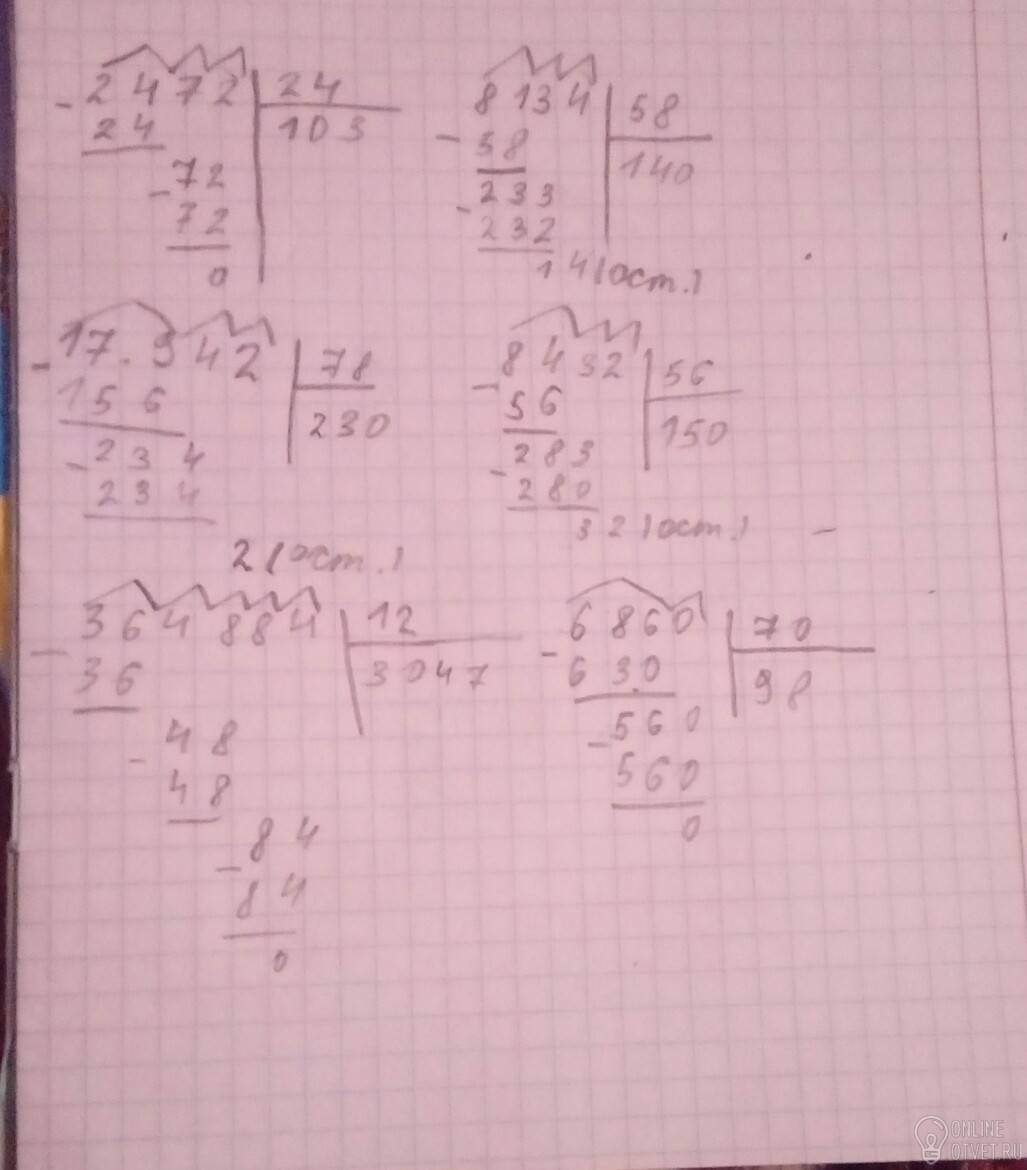 - 2472 24
24 103
- 72
72
0
8134 58
- 58 140
- 233
232
14 (ост.)
- 17.942 78
156 230
- 234
234
2 (ост.)
- 8432 56
56 150
- 283
280
32 (ост.) -
- 364 884 12
36 3047
- 48
48
- 84
84
0
- 6860 70
630 98
- 560
560
0
ONLINE
OTVET.RU